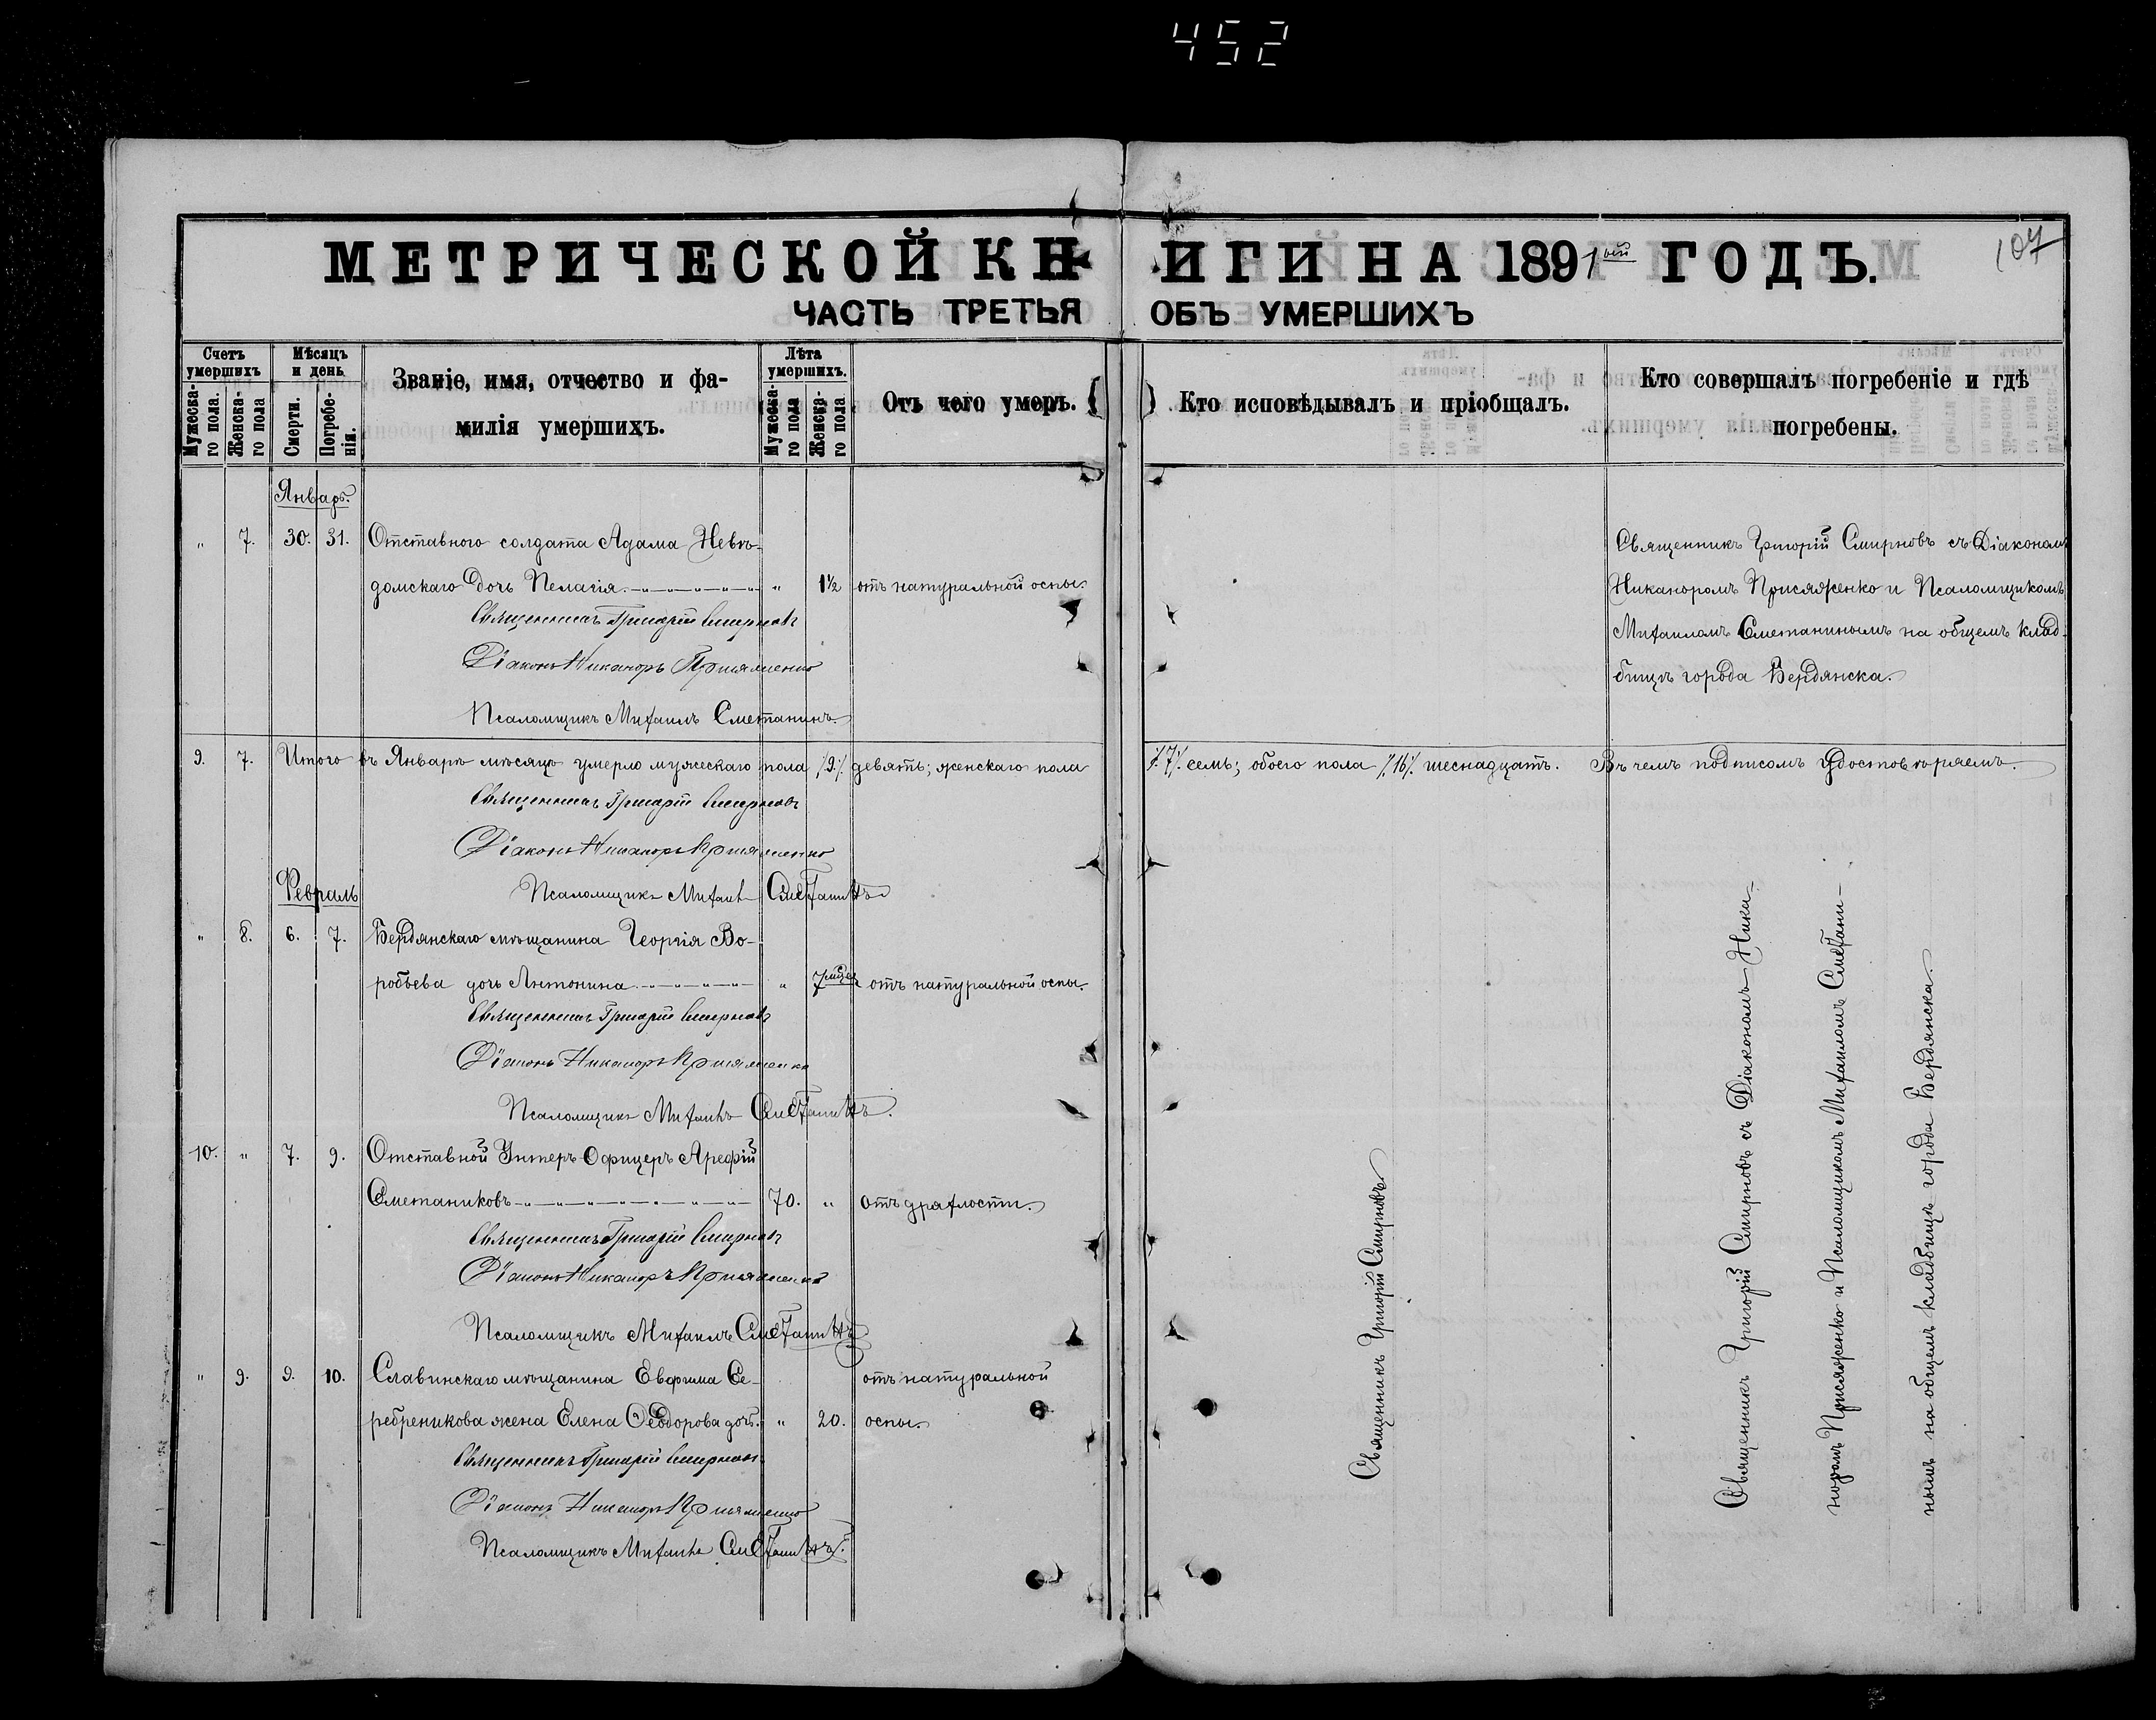 452
МЕТРИЧЕСКОЙ КНИГИ НА 1891ый ГОДЪ.
107
ЧАСТЬ ТРЕТЬЯ ОБЪ УМЕРШИХЪ
Счетъ умершихъ
Мужеска-го пола.
Женска-го пола
Мѣсяцъ и день
Смерти.
Погребе-нія.
Званіе, имя, отчество и фа-
милія умершихъ.
Лѣта умершихъ.
Мужеска-го пола
Женска-го пола
Отъ чего умеръ.
Кто исповѣдывалъ и пріобщалъ.
Кто совершалъ погребеніе и гдѣ
погребены.
Январь.
" 7. 30. 31. Отставного солдата Адама Невѣ-
домскаго дочь Пелагія " 1½ отъ натуральной оспы.
Священникъ Григорій Смирновъ
Діаконъ Никаноръ Присяженко
Псаломщикъ Михаилъ Сметанинъ.
Священникъ Григорій Смирновъ съ Діакономъ
Никаноромъ Присяженко и Псаломщикомъ
Михаиломъ Сметанинымъ на общемъ клад-
бищѣ города Бердянска.
9. 7. Итого въ Январѣ мѣсяцѣ умерло мужескаго пола /.9./ девять; женскаго пола /.7./ семь; обоего пола /.16/. шеснадцать. Въ чемъ подписомъ удостовѣряемъ.
Священникъ Григорій Смирновъ
Діаконъ Никаноръ Присяженко
Псаломщикъ Михаилъ Сметанинъ
Февраль
" 8. 6. 7. Бердянскаго мѣщанина Георгія Во-
робьева дочь Антонина " 7 мѣся отъ натуральной оспы.
Священникъ Григорій Смирновъ
Діаконъ Никаноръ Присяженко
Псаломщикъ Михаилъ Сметанинъ.
10. " 7. 9. Отставной Унтеръ Офицеръ Арефій
Сметаниковъ 70. " отъ драхлости.
Священникъ Григорій Смирновъ
Діаконъ Никаноръ Присяженко
Псаломщикъ Михаилъ Сметанинъ
" 9. 9. 10. Славинскаго мѣщанина Евфима Се- отъ натуральной
ребреникова жена Елена Феодорова дочь. " 20. оспы.
Священникъ Григорій Смирновъ
Діаконъ Никаноръ Присяженко
Псаломщикъ Михаилъ Сметанинъ.
Священникъ Григорій Смирновъ
Священникъ Григорій Смирновъ съ Діакономъ Ника-
норомъ Присяженко и Псаломщикомъ Михаиломъ Сметани-
нымъ на общемъ кладбищѣ города Бердянска.